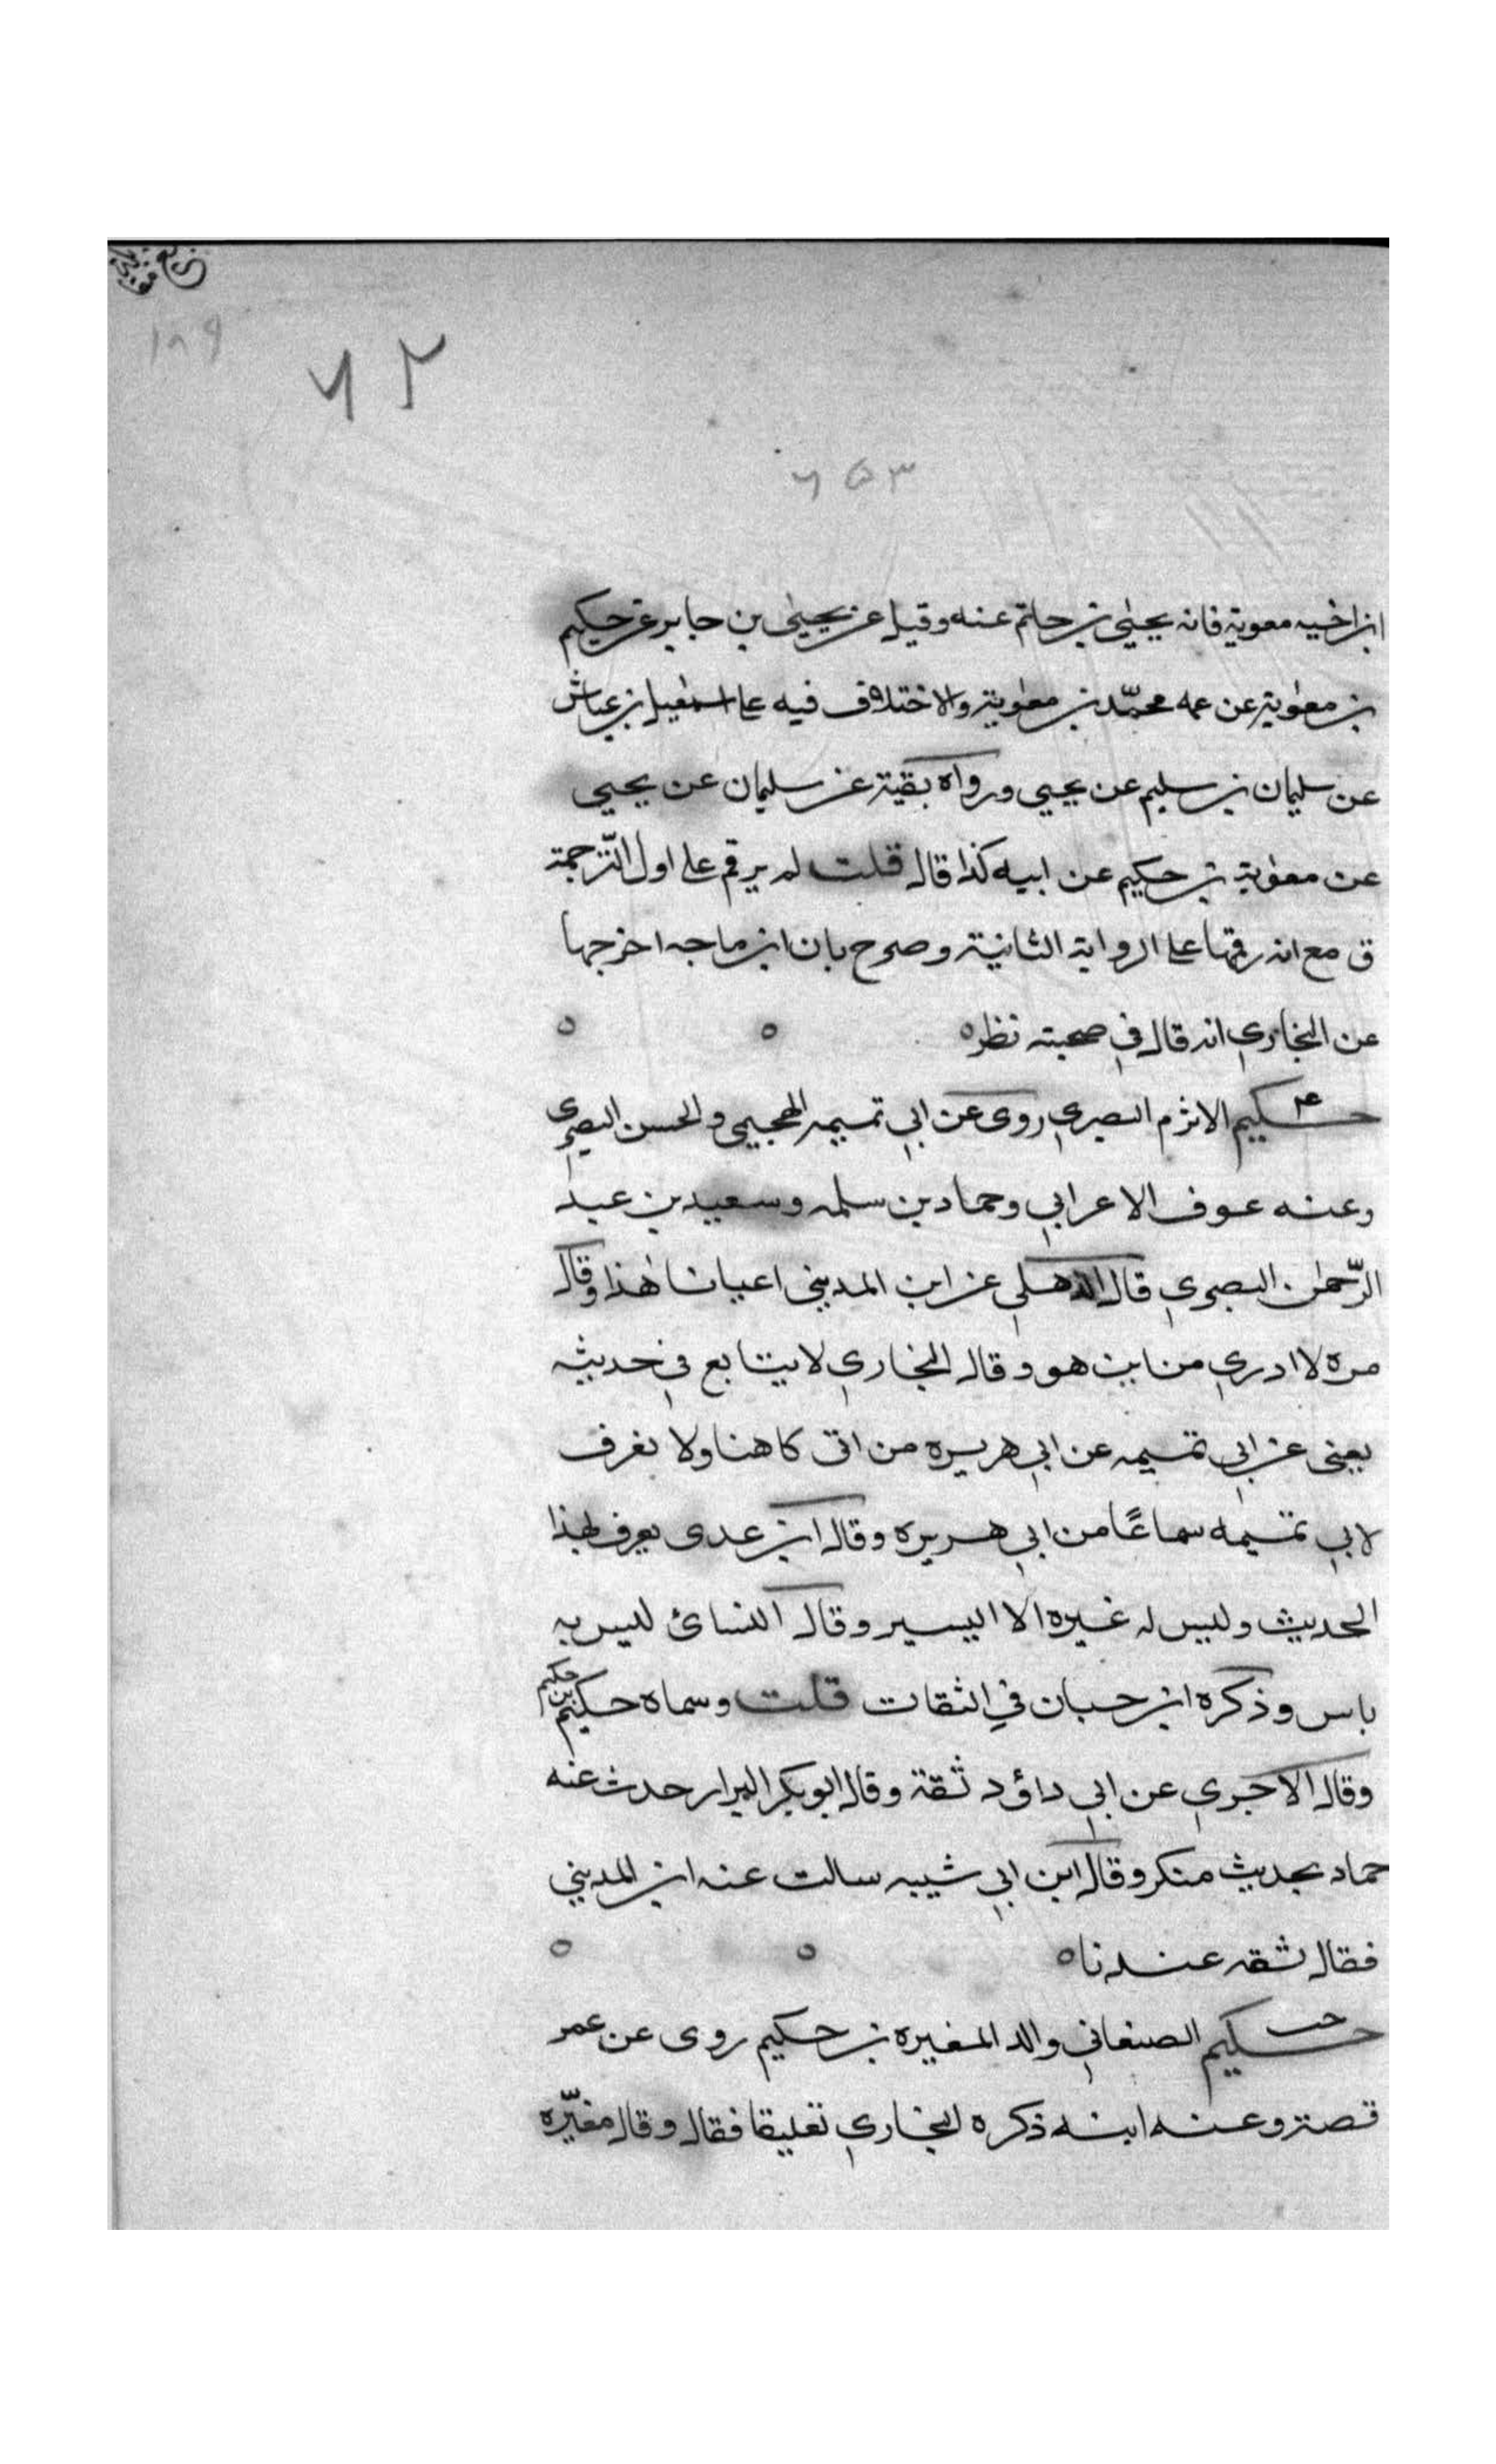 ١٨٩
٦٢
٦٥٣
ابن اخيه معوية فانه يحيى بن حاتم عنه وقيل عن يحيى بن جابر عن حكيم
بن معوية عن عمه محمد بن معوية والاختلاف فيه على اسمعيل بن عياش
عن سليمان بن سليم عن يحيى ورواه بقية عن سليمان عن يحيى
عن معوية بن حكيم عن ابيه كذا قال قلت لم يرقم على اول الترجمة
ق مع انه رقمها على الرواية الثانية وصرح بان ابن ماجه اخرجها
عن البخاري انه قال في صحبته نظر ه
حكيم الاثرم البصري روى عن ابي تميمه الهجيمي والحسن البصري
وعنه عوف الاعرابي وحماد بن سلمه وسعيد بن عبد
الرّحمن البصري قال الذهلي عن ابن المديني اعيانا هذا وقال
مره لا ادري من اين هو وقال البخاري لا يتابع في حديثه
يعني عن ابي تميمه عن ابي هريره من اتى كاهنا ولا نعرف
لابي تميمه سماعًا من ابي هريره وقال ابن عدى يعرف بهذا
الحديث وليس له غيره الا اليسير وقال النسائ ليس به
باس وذكره ابن حبان في الثقات قلت وسماه حكيم بن حكيم
وقال الاجري عن ابي داؤد ثقة وقال ابو بكر البزار حدث عنه
حماد بحديث منكر وقال ابن ابي شيبه سالت عنه ابن المديني
فقال ثقه عندنا ه
حكيم الصنعاني والد المغيره بن حكيم روى عن عمر
قصة وعنه ابنه ذكره البخاري تعليقا فقال وقال مغيّره